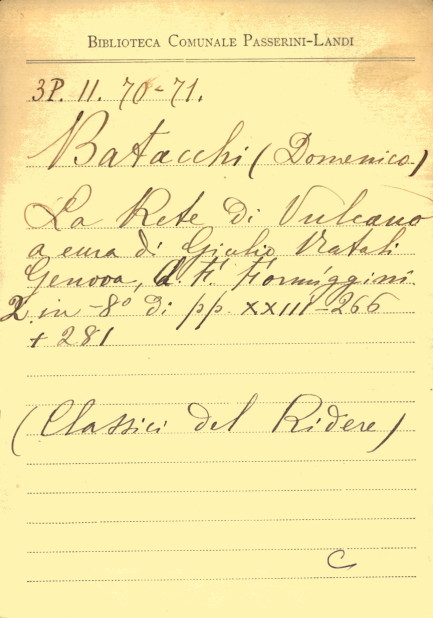 BIBLIOTECA COMUNALE PASSERINI-LANDI
3P. II. 70-71.
Batacchi (Domenico)
La Rete di Vulcano
a cura di Giulio Natali
Genova, A. F. Formiggini
2 in -8º di pp. XXIII-266
+ 281
(Classici del Ridere)
C